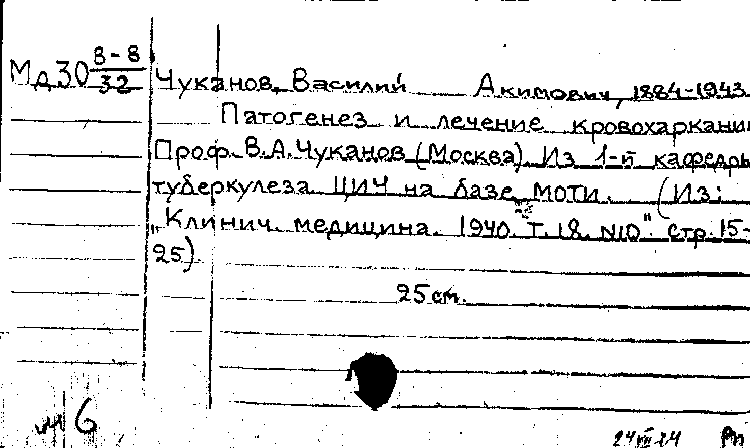 Мд30 8-8/32
Чуканов, Василий Акимович, 1884-1943.
Патогенез и лечение кровохаркани
Проф. В.А.Чуканов (Москва). Из 1-й кафедры
туберкулеза ЦИУ на базе МОТИ. (Из:
„Клинич. медицина. 1940. Т. 18. №10". стр. 15-
25).
25 см.
6